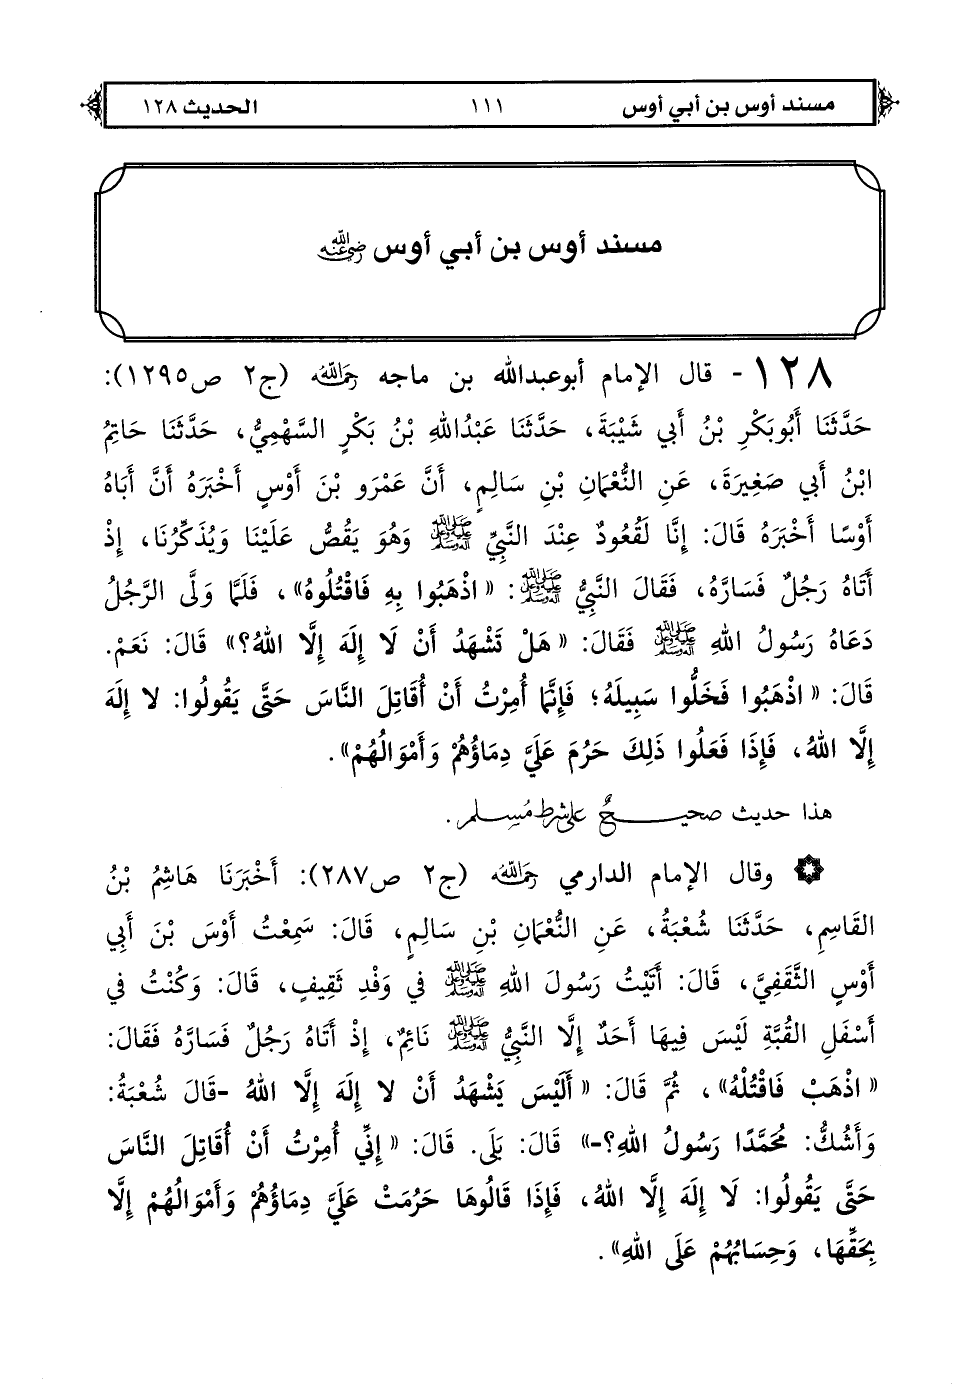 مسند أوس بن أبي أوس ١١١ الحديث ١٢٨
مسند أوس بن أبي أوس رضي الله عنه
١٢٨ - قال الإمام أبوعبدالله بن ماجه رحمه الله (ج٢ ص١٢٩٥):
حَدَّثَنَا أَبُوبَكْرِ بْنُ أَبِي شَيْبَةَ، حَدَّثَنَا عَبْدُاللهِ بْنُ بَكْرٍ السَّهْمِيُّ، حَدَّثَنَا حَاتِمُ
ابْنُ أَبِي صَغِيرَةَ، عَنِ النُّعْمَانِ بْنِ سَالِمٍ، أَنَّ عَمْرَو بْنَ أَوْسٍ أَخْبَرَهُ أَنَّ أَبَاهُ
أَوْسًا أَخْبَرَهُ قَالَ: إِنَّا لَقُعُودٌ عِنْدَ النَّبِيِّ ﷺ وَهُوَ يَقُصُّ عَلَيْنَا وَيُذَكِّرُنَا، إِذْ
أَتَاهُ رَجُلٌ فَسَارَّهُ، فَقَالَ النَّبِيُّ ﷺ: «اذْهَبُوا بِهِ فَاقْتُلُوهُ»، فَلَمَّا وَلَّى الرَّجُلُ
دَعَاهُ رَسُولُ اللهِ ﷺ فَقَالَ: «هَلْ تَشْهَدُ أَنْ لَا إِلَهَ إِلَّا اللهُ؟» قَالَ: نَعَمْ.
قَالَ: «اذْهَبُوا فَخَلُّوا سَبِيلَهُ؛ فَإِنَّمَا أُمِرْتُ أَنْ أُقَاتِلَ النَّاسَ حَتَّى يَقُولُوا: لا إِلَهَ
إِلَّا اللهُ، فَإِذَا فَعَلُوا ذَلِكَ حَرُمَ عَلَيَّ دِمَاؤُهُمْ وَأَمْوَالُهُمْ».
هذا حديث صحيحٌ على شرط مُسلم.
۞ وقال الإمام الدارمي رحمه الله (ج٢ ص٢٨٧): أَخْبَرَنَا هَاشِمُ بْنُ
القَاسِمِ، حَدَّثَنَا شُعْبَةُ، عَنِ النُّعْمَانِ بْنِ سَالِمٍ، قَالَ: سَمِعْتُ أَوْسَ بْنَ أَبِي
أَوْسٍ الثَّقَفِيَّ، قَالَ: أَتَيْتُ رَسُولَ اللهِ ﷺ فِي وَفْدِ ثَقِيفٍ، قَالَ: وَكُنْتُ فِي
أَسْفَلِ القُبَّةِ لَيْسَ فِيهَا أَحَدٌ إِلَّا النَّبِيُّ ﷺ نَائِمٌ، إِذْ أَتَاهُ رَجُلٌ فَسَارَّهُ فَقَالَ:
«اذْهَبْ فَاقْتُلْهُ»، ثُمَّ قَالَ: «أَلَيْسَ يَشْهَدُ أَنْ لا إِلَهَ إِلَّا اللهُ -قَالَ شُعْبَةُ:
وَأَشُكُّ: مُحَمَّدًا رَسُولُ اللهِ؟-» قَالَ: بَلَى. قَالَ: «إِنِّي أُمِرْتُ أَنْ أُقَاتِلَ النَّاسَ
حَتَّى يَقُولُوا: لَا إِلَهَ إِلَّا اللهُ، فَإِذَا قَالُوهَا حَرُمَتْ عَلَيَّ دِمَاؤُهُمْ وَأَمْوَالُهُمْ إِلَّا
بِحَقِّهَا، وَحِسَابُهُمْ عَلَى اللهِ».